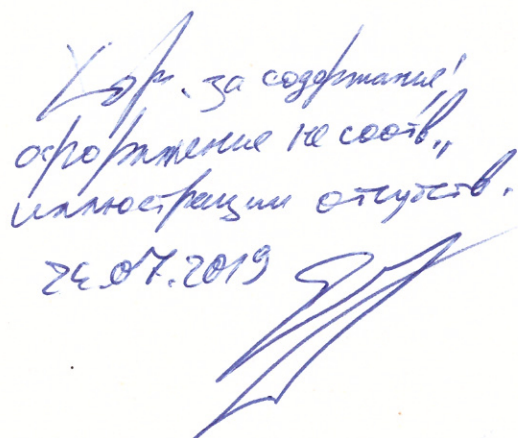 Хор. за содержание,
оформление не соотв.,
иллюстрации отсутств.
24.07.2019